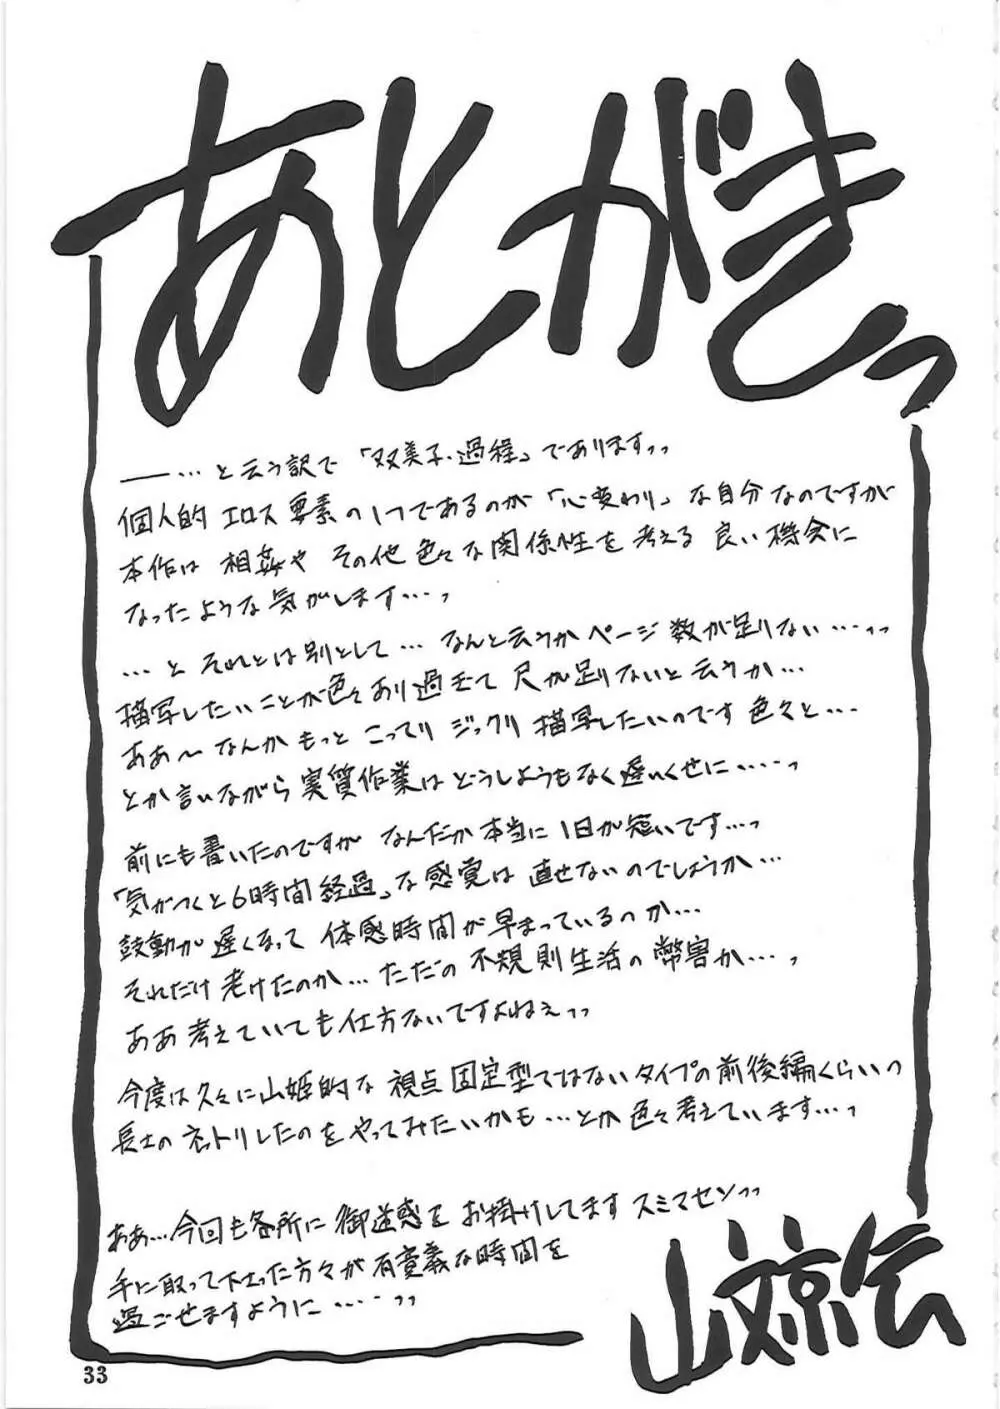 あとがきっ
――…と云う訳で「双美子・過程」でありますっっ
個人的エロス要素の1つであるのが「心変わり」な自分なのですが
本作は相姦やその他色々な関係性を考える良い機会に
なったような気がします…っ
…とそれとは別として…なんと云うかページ数が足りない…っっ
描写したいことが色々あり過ぎて尺が足りないと云うか…
ああ〜なんかもっとこってりジックリ描写したいのです色々と…
とか言いながら実質作業はどうしようもなく遅いくせに……っ
前にも書いたのですがなんだか本当に1日が短いです…っ
「気がつくと6時間経過」な感覚は直せないのでしょうか…
鼓動が遅くなって体感時間が早まっているのか…
それだけ老けたのか…ただの不規則生活の弊害か…っ
ああ考えていても仕方ないですよねぇっっ
今度は久々に山姫的な視点固定型ではないタイプの前後編くらいの
長さのネットリしたのをやってみたいかも…とか色々考えています…っ
ああ…今回も各所に御迷惑をお掛けしてますスミマセンっっ
手に取って下さった方々が有意義な時間を
過ごせますように……っっ
山文京伝
33